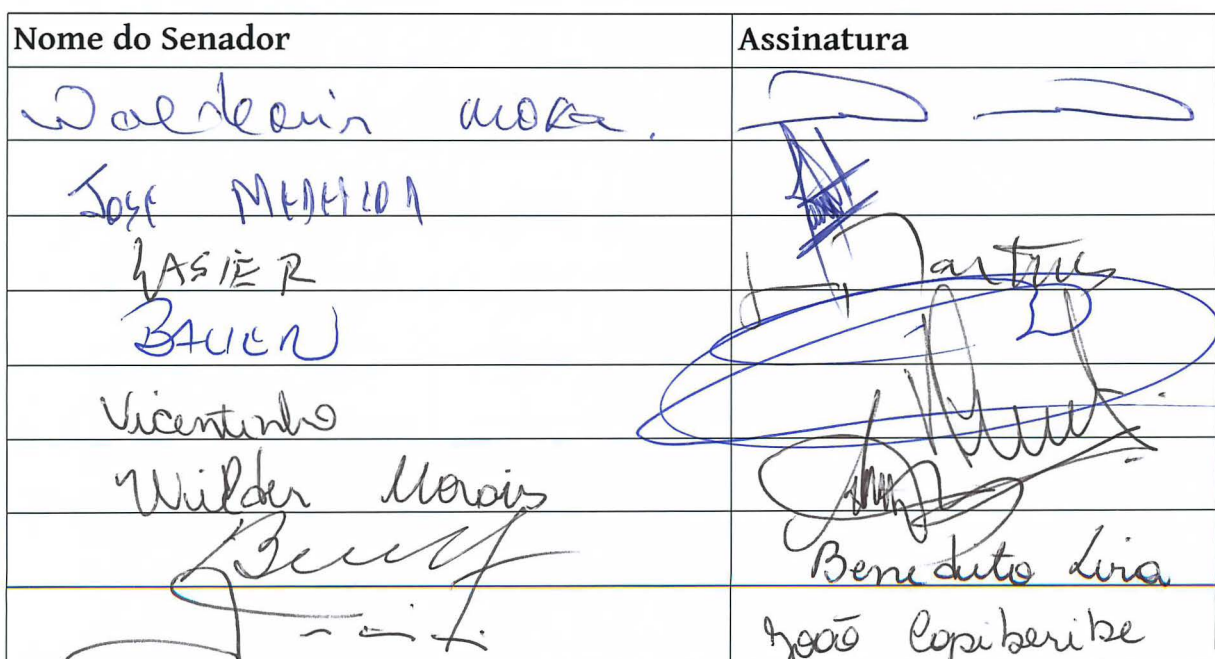 Nome do Senador Assinatura
Waldemir Moka.
José MEDEIROS
LASIER Martins
BAUER
Vicentinho
Wilder Morais
Benedito Lira
João Capiberibe